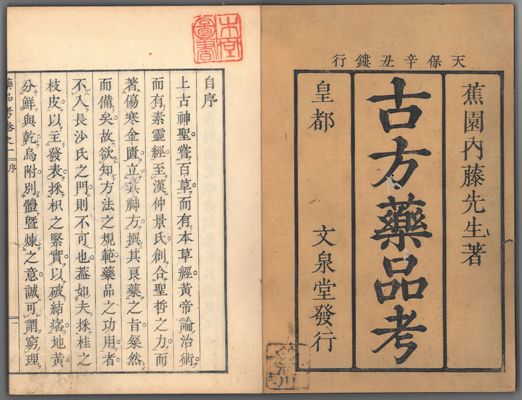 天保辛丑鏤行
蕉園內藤先生著
古方藥品考
皇都 文泉堂發行
自序
上古神聖嘗百草而有本草經黃帝論治術
而有素靈經至漢仲景氏創合聖哲之力而
著傷寒金匱立其神方撰其良藥之旨粲然
而備矣故欲知方法之規範藥品之功用者
不入長沙氏之門則不可也蓋如夫採桂之
枝皮以主發表採枳之緊實以破結地黃
分鮮與乾烏附別體曁煉之意誠可謂窮理
藥品考卷之一 序